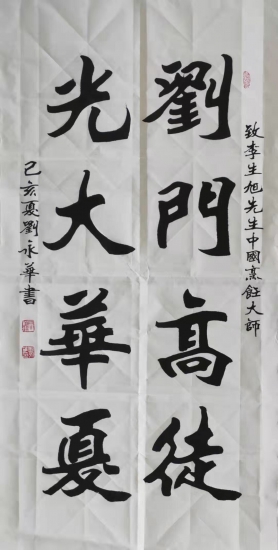 致李生旭先生中國烹飪大師
劉門高徒
光大華夏
己亥夏劉永華書